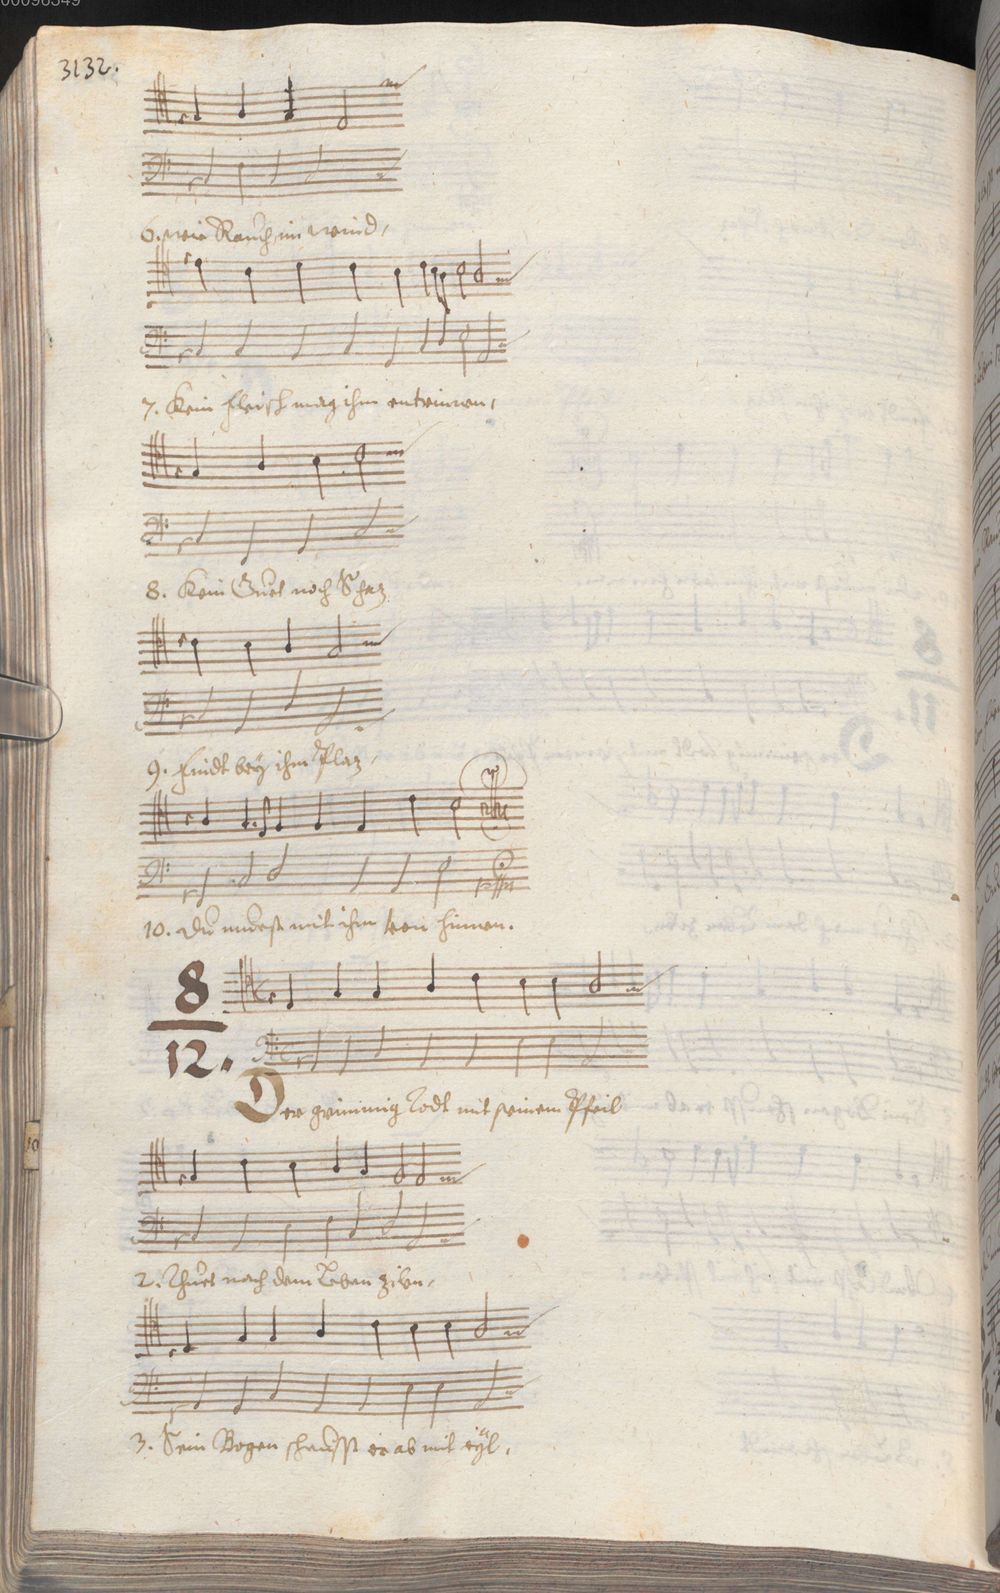 00098349
3132.
6. wie Rauch im wind,
7. Kein fleisch mag ihm entrinnen,
8. Kein Guet noch Schaz
9. findt bey ihm Plaz,
10. du muest mit ihm von hinnen.
8
12.
Der grimmig Todt mit seinem Pfeil
2. Thuet nach dem Leben zihn,
3. Sein Bogen scheusst er ab mit eÿl,